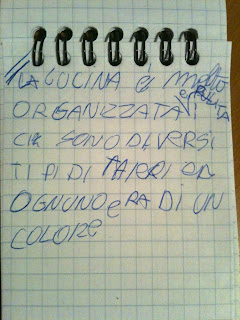 LA CUCINA è MOLTO
ORGANIZZATA e PULITA
SONO DIVERSI
TIPI DI
OGNUNO eRA DI UN
COLORe